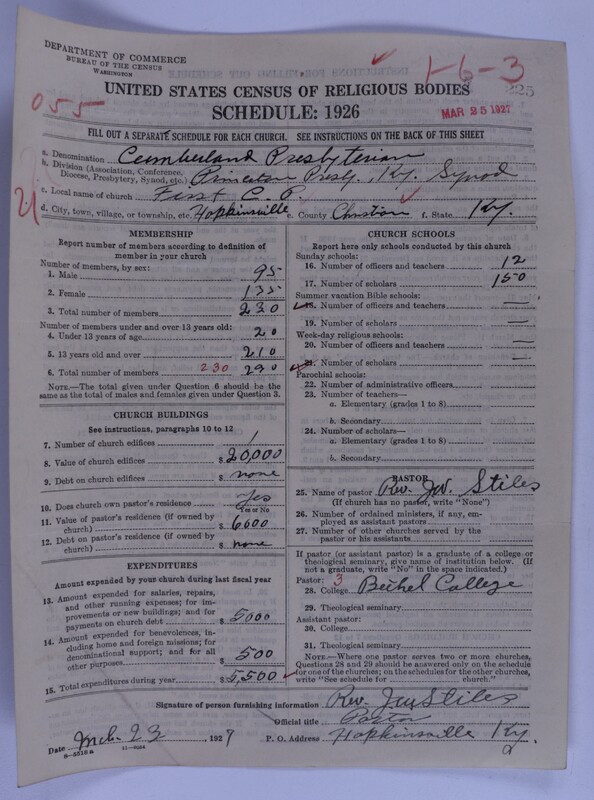 DEPARTMENT OF COMMERCE
BUREAU OF THE CENSUS
WASHINGTON
1-6-3
225
055
UNITED STATES CENSUS OF RELIGIOUS BODIES
SCHEDULE: 1926
MAR 25 1927
FILL OUT A SEPARATE SCHEDULE FOR EACH CHURCH. SEE INSTRUCTIONS ON THE BACK OF THIS SHEET
a. Denomination Cumberland Presbyterian
b. Division (Association, Conference, Diocese, Presbytery, Synod, etc.) Princeton Presby., Ky. Synod
c. Local name of church First C. P.
21
d. City, town, village, or township, etc. Hopkinsville e. County Christian f. State Ky.
MEMBERSHIP
Report number of members according to definition of
member in your church
Number of members, by sex:
1. Male 95
2. Female 135
3. Total number of members 230
Number of members under and over 13 years old:
4. Under 13 years of age 20
5. 13 years old and over 210
6. Total number of members 230 230
NOTE.—The total given under Question 6 should be
the same as the total of males and females given under Question 3.
CHURCH BUILDINGS
See instructions, paragraphs 10 to 12
7. Number of church edifices 1
8. Value of church edifices $ 20,000
9. Debt on church edifices $ none
10. Does church own pastor's residence? Yes
Yes or No
11. Value of pastor's residence (if owned by
church) $ 6000
12. Debt on pastor's residence (if owned by
church) $ none
EXPENDITURES
Amount expended by your church during last fiscal year
13. Amount expended for salaries, repairs,
and other running expenses; for im-
provements or new buildings; and for
payments on church debt $ 5000
14. Amount expended for benevolences, in-
cluding home and foreign missions; for
denominational support; and for all
other purposes $ 500
15. Total expenditures during year $ 5,500
CHURCH SCHOOLS
Report here only schools conducted by this church
Sunday schools:
16. Number of officers and teachers 12
17. Number of scholars 150
Summer vacation Bible schools:
18. Number of officers and teachers —
19. Number of scholars —
Week-day religious schools:
20. Number of officers and teachers —
21. Number of scholars —
Parochial schools:
22. Number of administrative officers
23. Number of teachers—
a. Elementary (grades 1 to 8)
b. Secondary
24. Number of scholars—
a. Elementary (grades 1 to 8)
b. Secondary
PASTOR
25. Name of pastor Rev. J.W. Stiles
(If church has no pastor, write "None")
26. Number of ordained ministers, if any, em-
ployed as assistant pastors
27. Number of other churches served by the
pastor or his assistants
If pastor (or assistant pastor) is a graduate of a college or
theological seminary, give name of institution below. (If
not a graduate, write "No" in the space indicated.)
Pastor: 3
28. College Bethel College
29. Theological seminary
Assistant pastor:
30. College
31. Theological seminary
NOTE.—Where one pastor serves two or more churches,
Questions 28 and 29 should be answered only on the schedule
for one of the churches; on the schedules for the other churches,
write "See schedule for ........ church."
Signature of person furnishing information Rev. J W Stiles
Official title Pastor
Date Mch. 23, 1927 P. O. Address Hopkinsville Ky.
8-5318a 11-9094